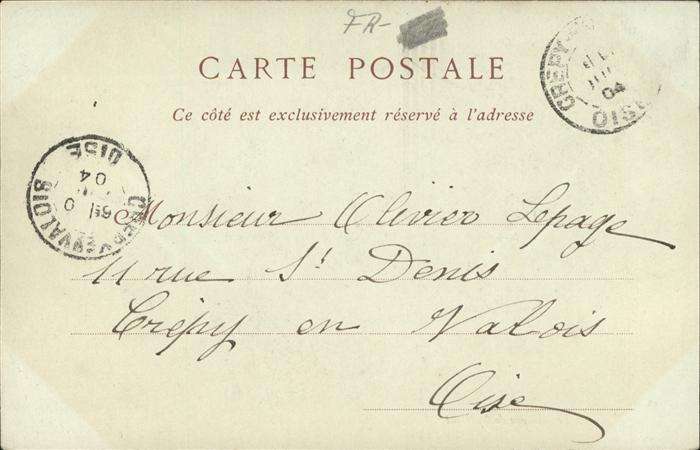 FR-
CARTE POSTALE
Ce côté est exclusivement réservé à l'adresse
CRÉPY
04
OISE
CRÉPY-EN-VALOIS
OISE
04
Monsieur Olivier Lepage
11 rue St Denis
Crépy en Valois
Oise